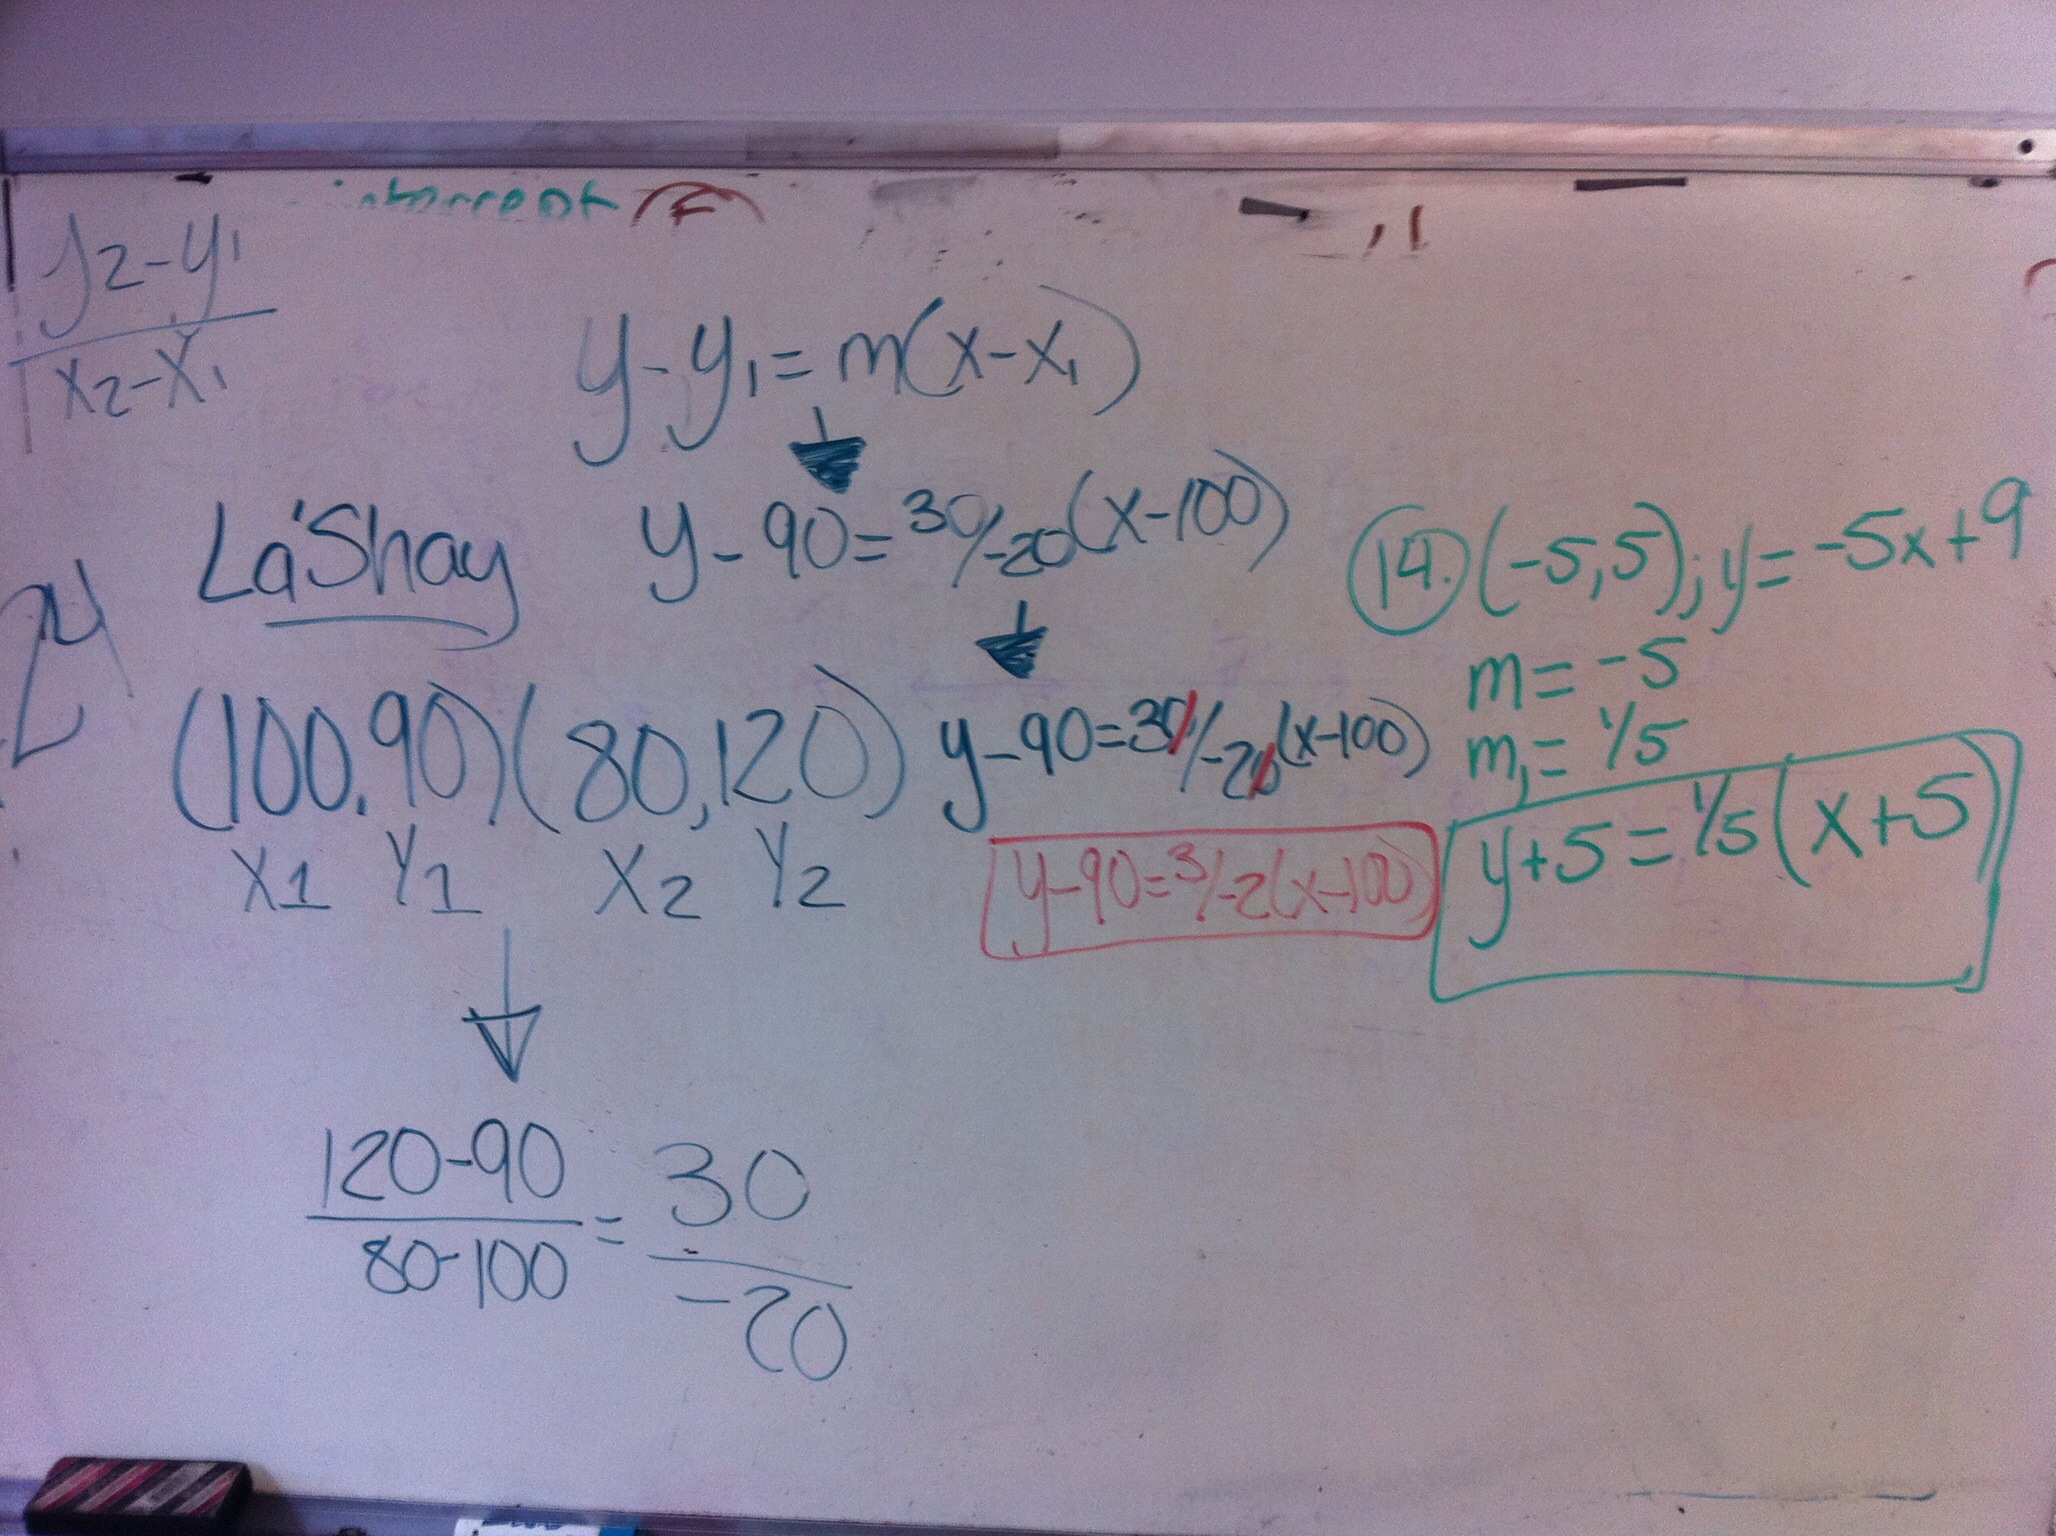 y2-y1
x2-x1
y-y1=m(x-x1)
La'Shay
y-90=30/-20(x-100)
(100,90)(80,120)
X1 Y1 X2 Y2
y-90=30/-20(x-100)
y-90=3/-2(x-100)
120-90 = 30
80-100 -20
14. (-5,5); y=-5x+9
m=-5
m1=1/5
y+5=1/5(x+5)